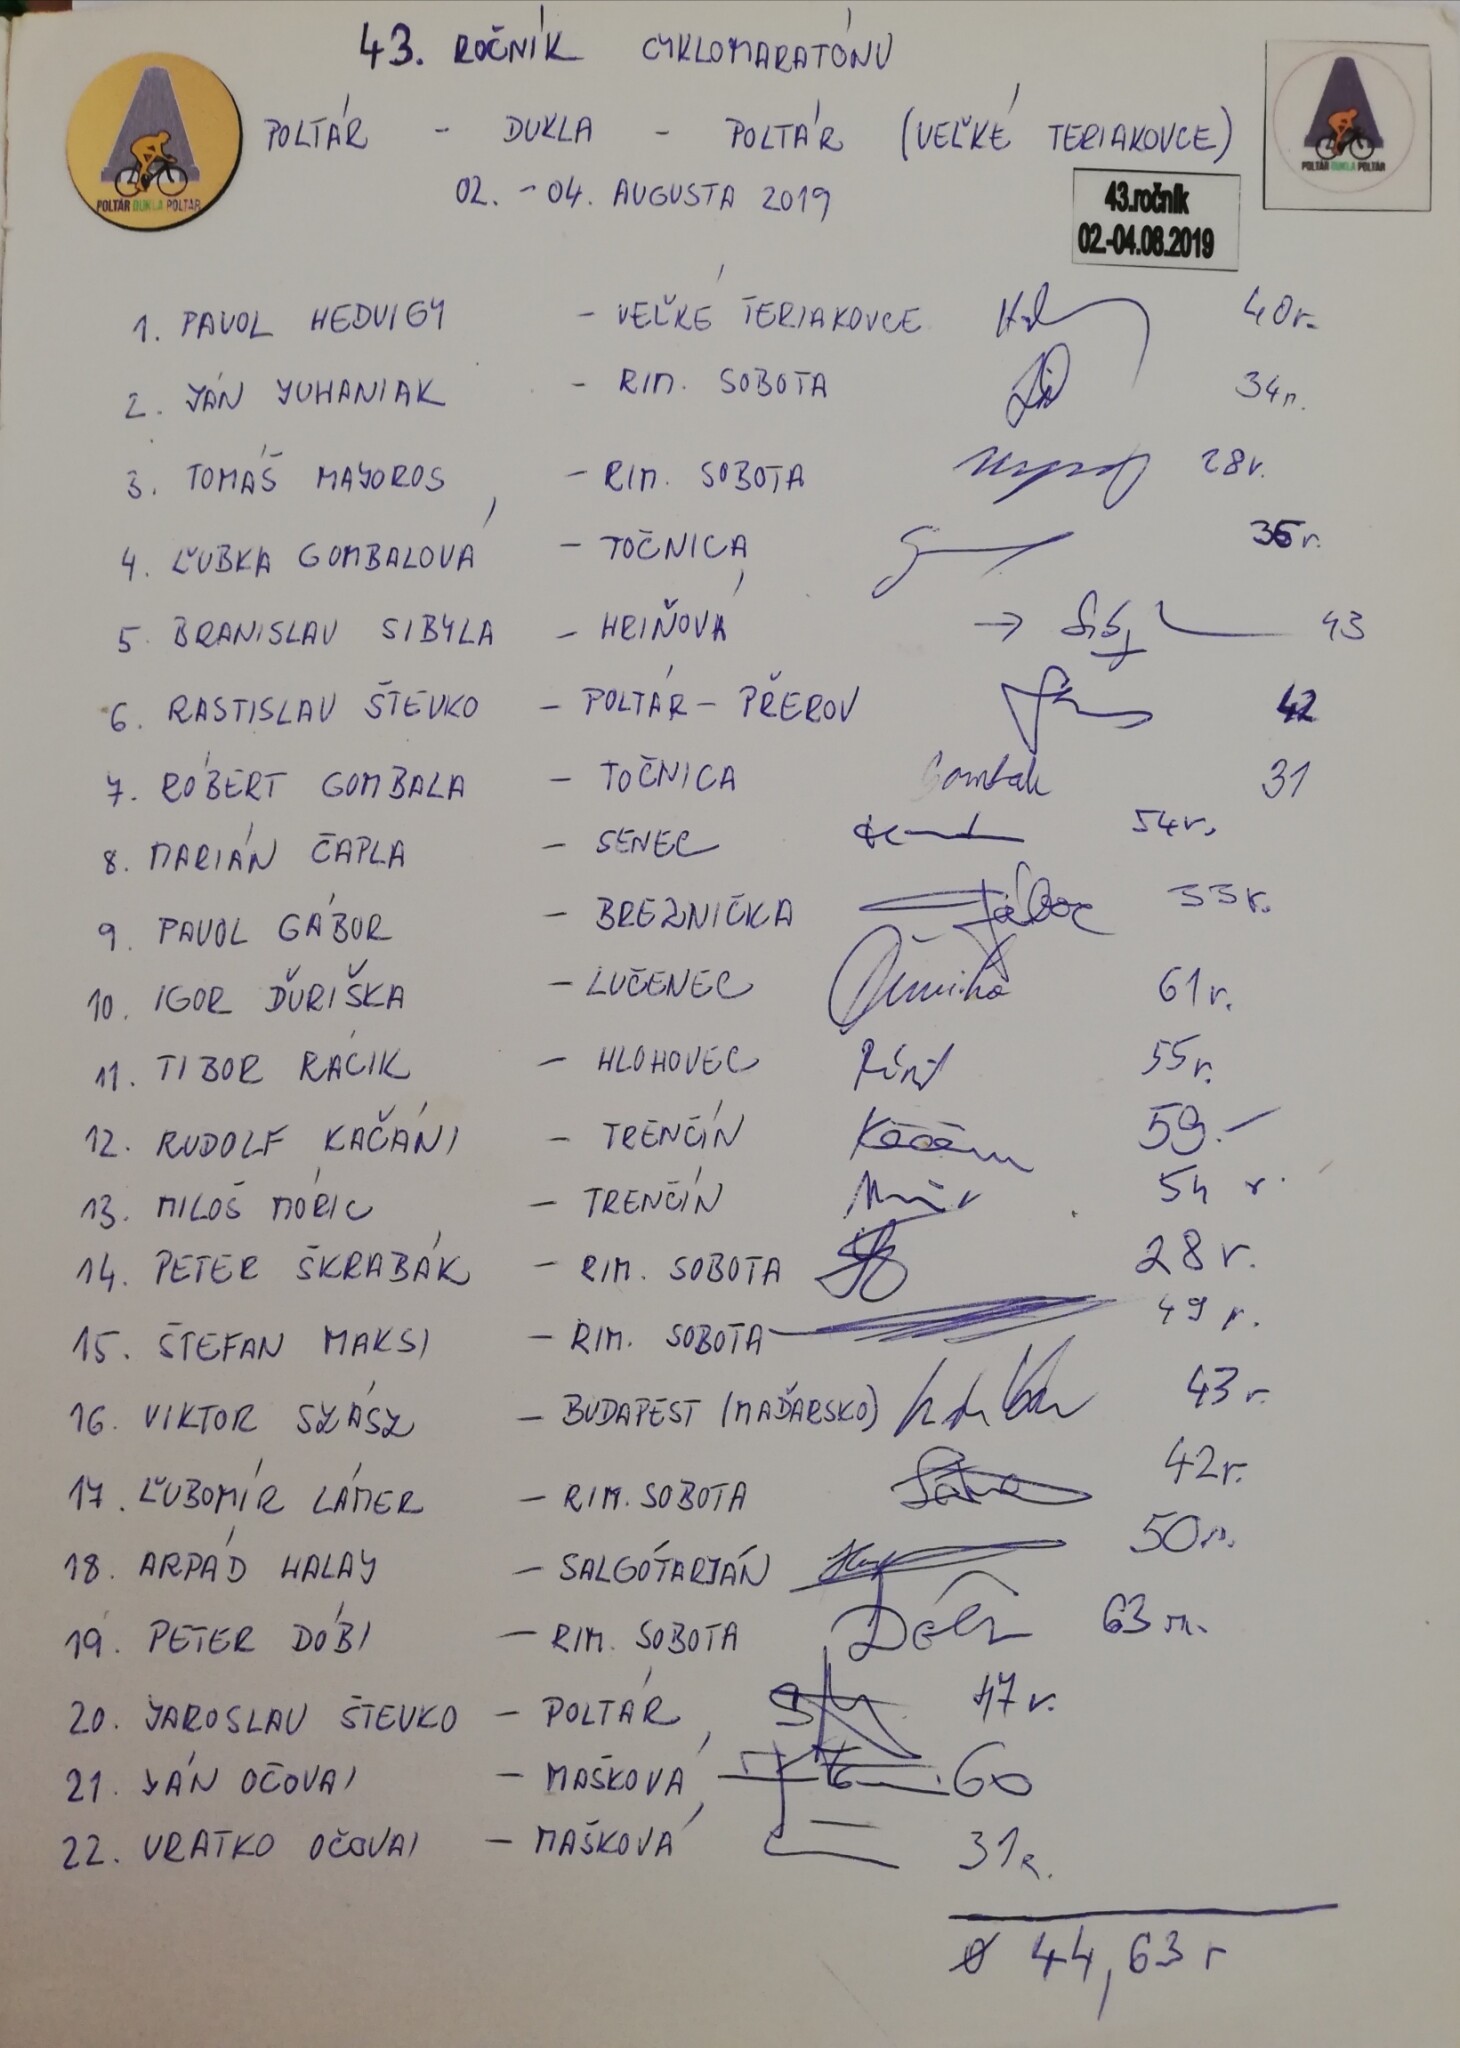 43. ROČNÍK CYKLOMARATÓNU
POLTÁR - DUKLA - POLTÁR (VEĽKÉ TERIAKOVCE)
02. - 04. AUGUSTA 2019
POLTÁR DUKLA POLTÁR
POLTÁR DUKLA POLTÁR
43.ročník
02.-04.08.2019
1. PAVOL HEDVIGY - VEĽKÉ TERIAKOVCE 40r.
2. JÁN JUHANIAK - RIM. SOBOTA 34r.
3. TOMÁŠ MAJOROS - RIM. SOBOTA 28r.
4. ĽUBKA GOMBALOVÁ - TOČNICA 36r.
5. BRANISLAV SIBYLA - HRIŇOVÁ → 43
6. RASTISLAV ŠTEVKO - POLTÁR - PŘEROV 42
7. RÓBERT GOMBALA - TOČNICA 31
8. MARIÁN ČAPLA - SENEC 54r.
9. PAVOL GÁBOR - BREZNIČKA Gábor 33r.
10. IGOR ĎURIŠKA - LUČENEC Ďuriška 61r.
11. TIBOR RÁCIK - HLOHOVEC 55r.
12. RUDOLF KAČÁNI - TRENČÍN 59.-
13. MILOŠ MÓRIC - TRENČÍN 54 r.
14. PETER ŠKRABÁK - RIM. SOBOTA 28r.
15. ŠTEFAN MAKSI - RIM. SOBOTA 49 r.
16. VIKTOR SZÁSZ - BUDAPEST (MAĎARSKO) 43r.
17. ĽUBOMÍR LÁMER - RIM. SOBOTA 42r.
18. ARPÁD HALAJ - SALGÓTARJÁN 50r.
19. PETER DÓBI - RIM. SOBOTA 63 r.
20. JAROSLAV ŠTEVKO - POLTÁR 47r.
21. JÁN OČOVAI - MAŠKOVÁ 60
22. VRATKO OČOVAI - MAŠKOVÁ 31r.
Ø 44,63 r